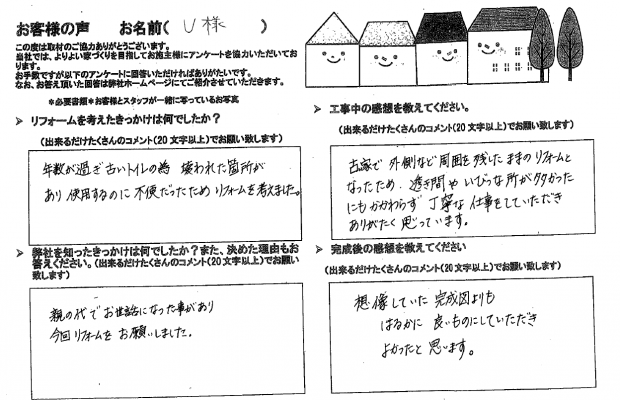 お客様の声　お名前( U 様 )
この度は取材のご協力ありがとうございます。
当社では、よりよい家づくりを目指してお施主様にアンケートを協力いただいてお
ります。
お手数ですが以下のアンケートに回答いただければありがたいです。
なお、お答え頂いた回答は弊社ホームページにてご紹介させていただきます。
＊必要書類＊お客様とスタッフが一緒に写っているお写真
➢ リフォームを考えたきっかけは何でしたか？
(出来るだけたくさんのコメント(20文字以上)でお願い致します)
年数が過ぎ古いトイレの為 壊われた箇所が
あり 使用するのに 不便だったため リフォームを考えました。
➢ 弊社を知ったきっかけは何でしたか？また、決めた理由もお
答えください。(出来るだけたくさんのコメント(20文字以上)でお願
い致します)
親の代で お世話になった事があり
今回 リフォームを お願いしました。
➢ 工事中の感想を教えてください。
(出来るだけたくさんのコメント(20文字以上)でお願い致します)
古家で 外側など 周囲を 残したままの リフォームと
なったため、透き間や いびつな所が多かった
にもかかわらず 丁寧な 仕事をしていただき
ありがたく 思っています。
➢ 完成後の感想を教えてください
(出来るだけたくさんのコメント(20文字以上)でお願い致します)
想像していた 完成図よりも
はるかに 良いものにしていただき
よかったと 思います。